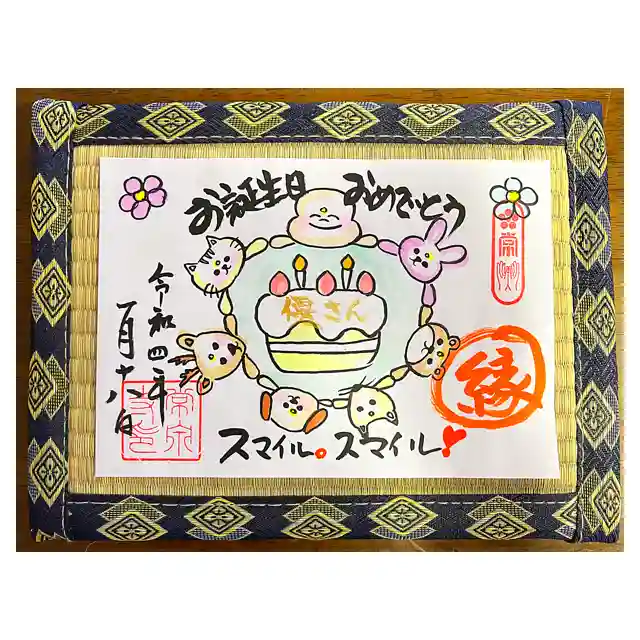 お誕生日 おめでとう
優さん
令和四年
一月十八日
スマイル。スマイル!
縁